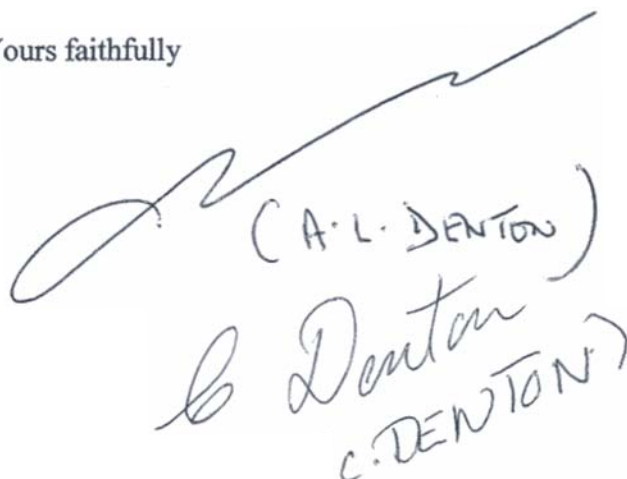 Yours faithfully
(A.L. DENTON)
C Denton
C. DENTON)